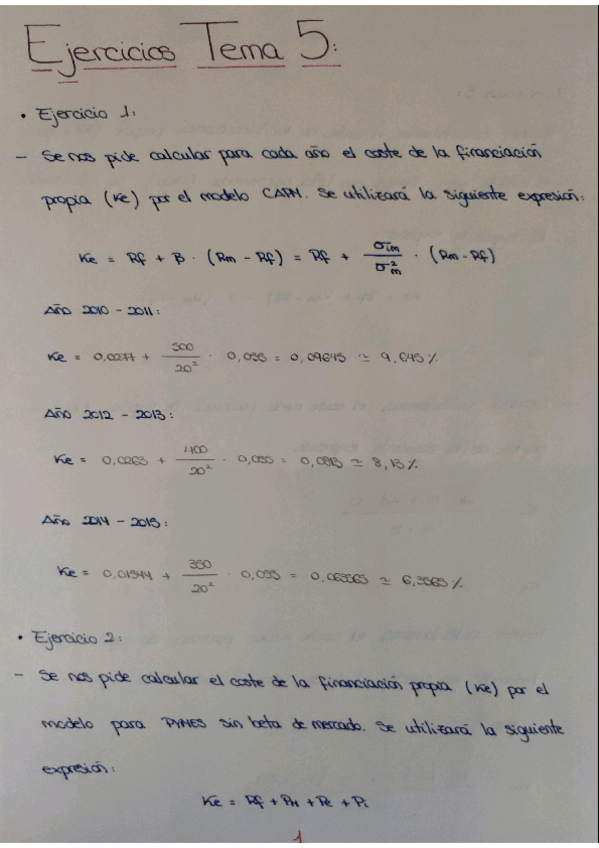 Ejercicios Tema 5:
• Ejercicio 1:
- Se nos pide calcular para cada año el coste de la financiación
propia (Ke) por el modelo CAPM. Se utilizará la siguiente expresión:
Ke = Rf + B · (Rm - Rf) = Rf + σim / σ²m · (Rm - Rf)
Año 2010 - 2011:
Ke = 0,0277 + 500 / 20² · 0,055 = 0,09645 ≃ 9,645 %
Año 2012 - 2013:
Ke = 0,0263 + 400 / 20² · 0,055 = 0,0813 ≃ 8,13 %
Año 2014 - 2015:
Ke = 0,01544 + 350 / 20² · 0,055 = 0,063565 ≃ 6,3565 %
• Ejercicio 2:
- Se nos pide calcular el coste de la financiación propia (Ke) por el
modelo para PYMES sin beta de mercado. Se utilizará la siguiente
expresión:
Ke = Rf + PM + Pe + Pi
1